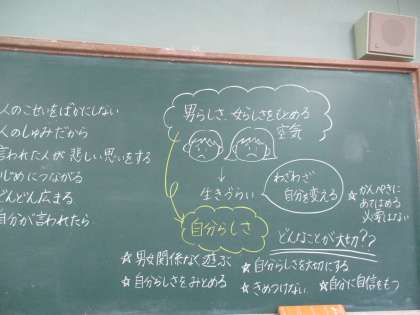 人のこせいをばかにしない
人のしゅみだから
言われた人が悲しい思いをする
じめにつながる
どんどん広まる
自分が言われたら
男らしさ、女らしさをもとめる
空気
↓
生きづらい
わざわざ
自分を変える
自分らしさ
★かんぺきに
あてはめる
必要はない
どんなことが大切??
★男女関係なく遊ぶ
★自分らしさをみとめる
★自分らしさを大切にする
★きめつけない
★自分に自信をもつ